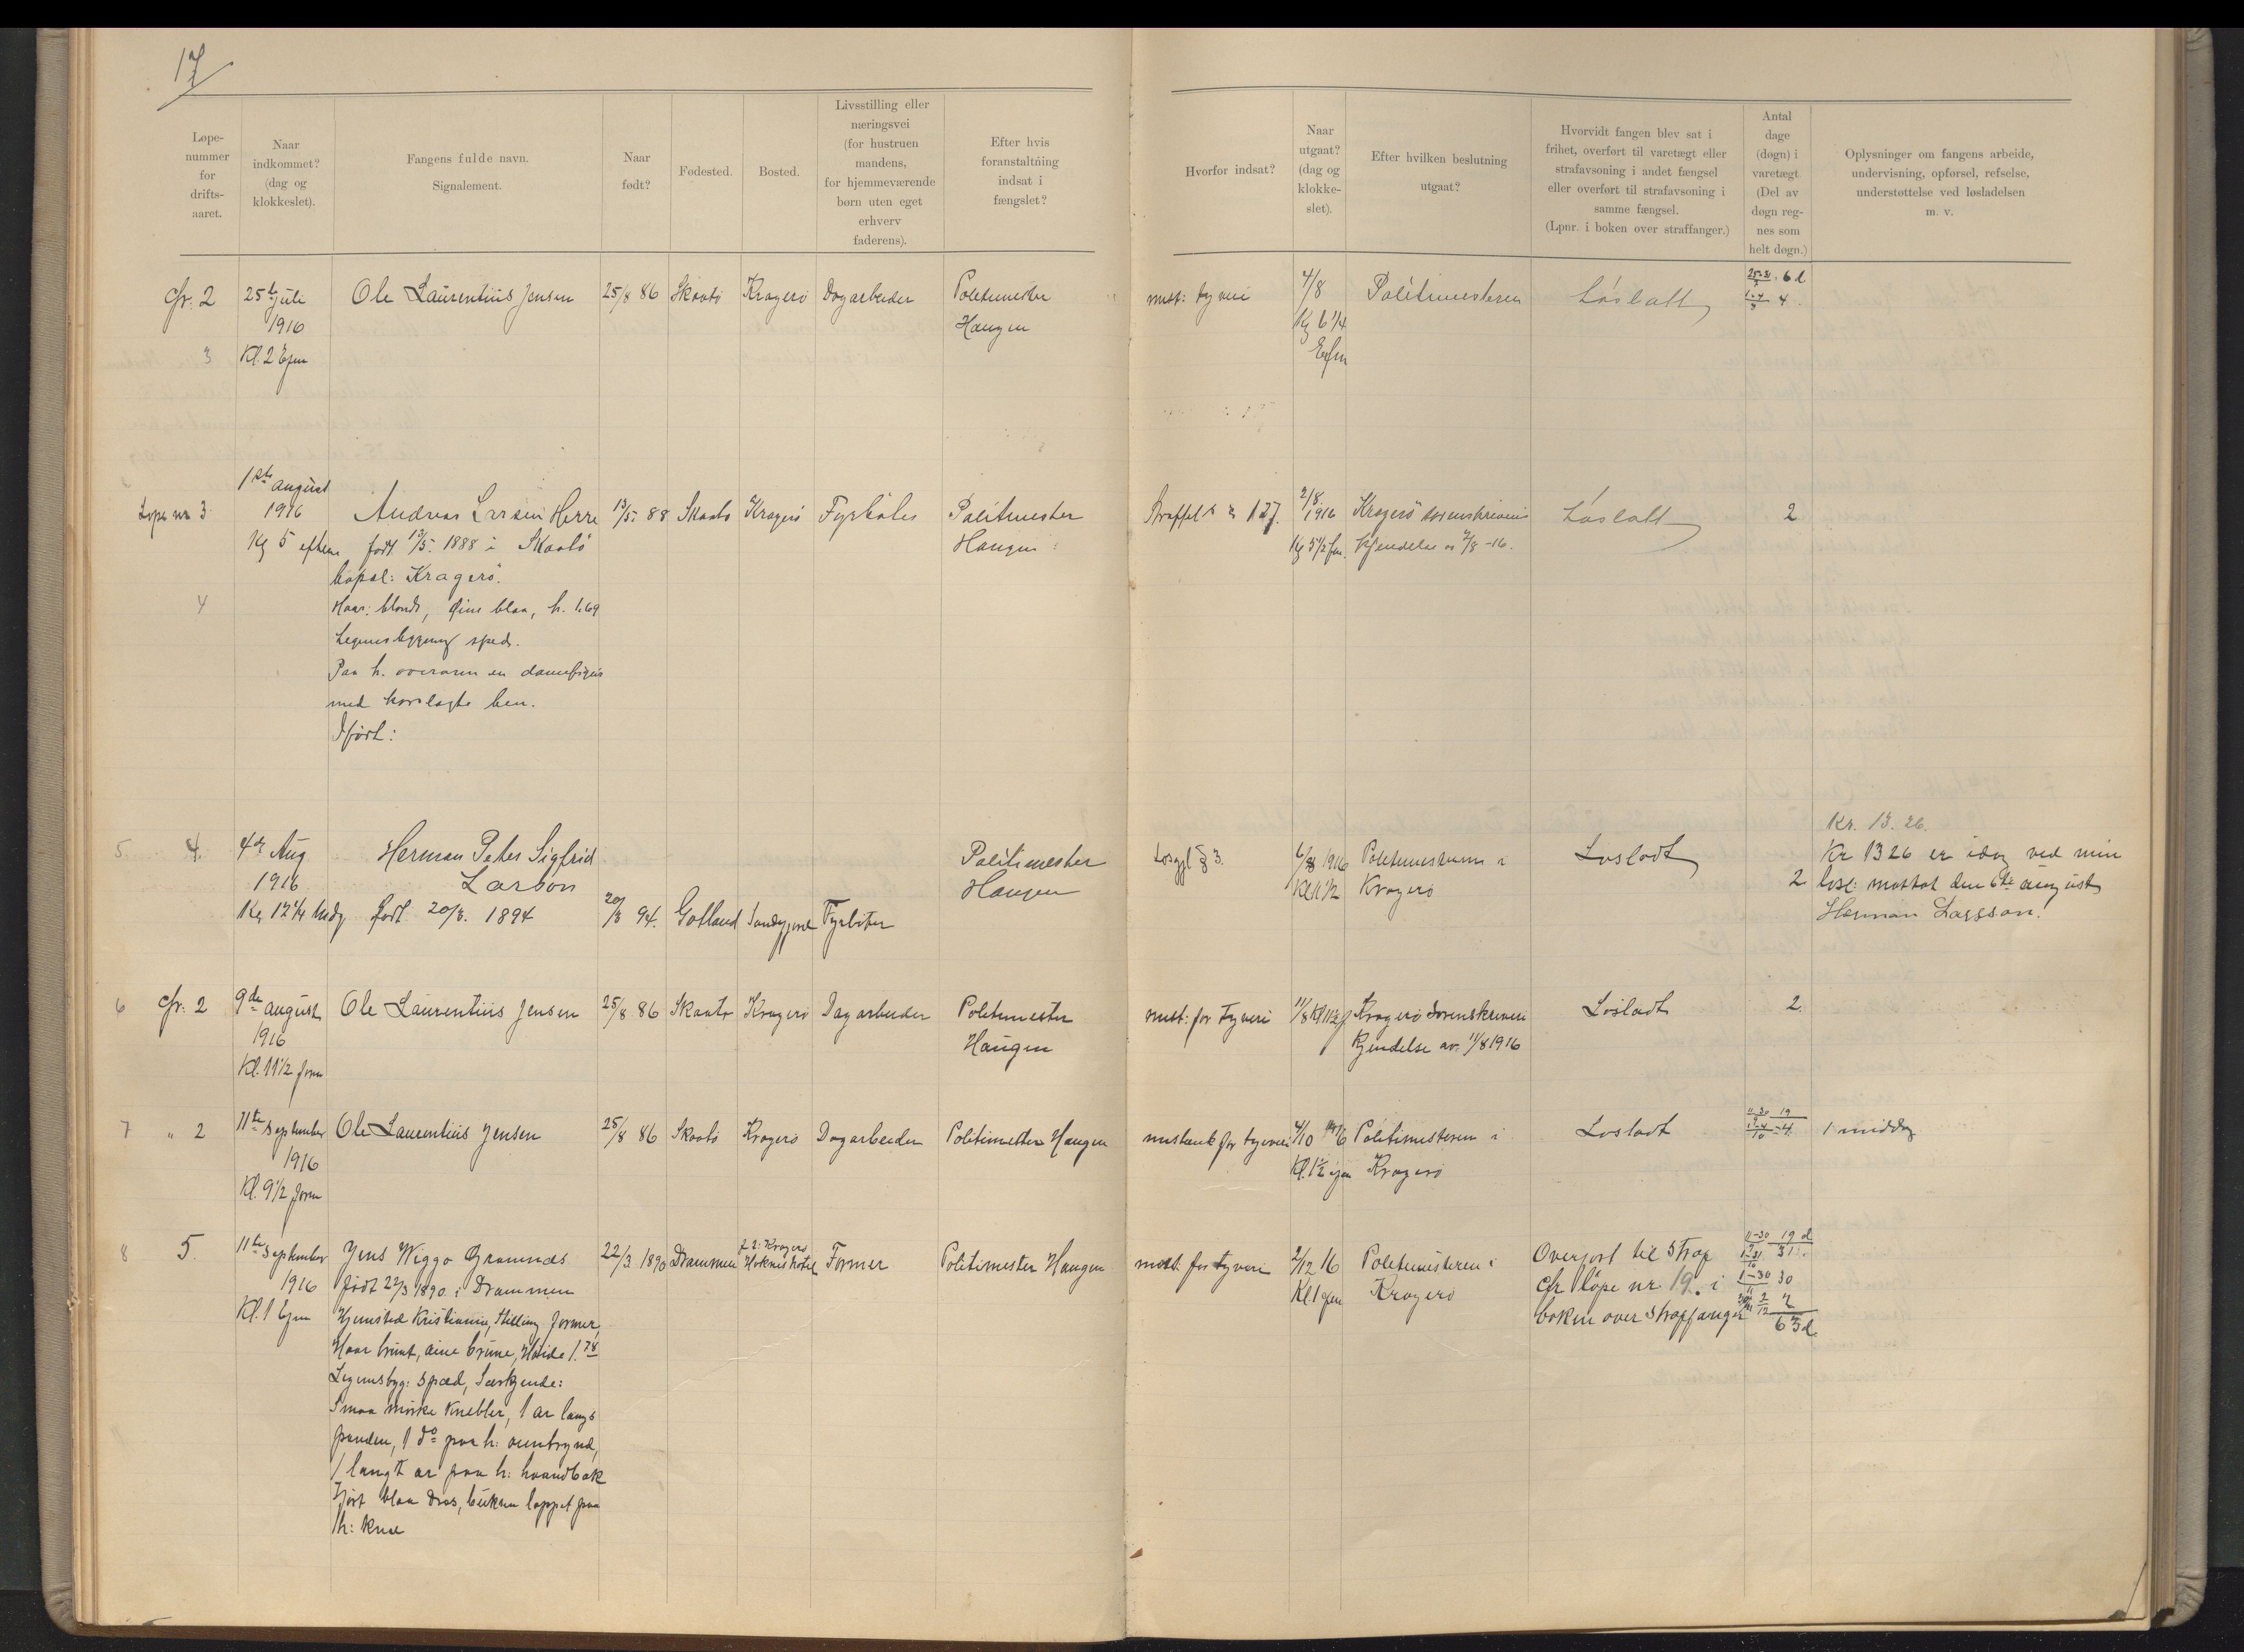 17
Løpe-
nummer
for
drifts-
aaret.
Naar
indkommet?
(dag og
klokkeslet).
Fangens fulde navn.
Signalement.
Naar
født?
Fødested.
Bosted.
Livsstilling eller
næringsvei
(for hustruen
mandens,
for hjemmeværende
børn uten eget
erhverv
faderens).
Efter hvis
foranstaltning
indsat i
fængslet?
Hvorfor indsat?
Naar
utgaat?
(dag og
klokke-
slet).
Efter hvilken beslutning
utgaat?
Hvorvidt fangen blev sat i
frihet, overført til varetægt eller
strafavsoning i andet fængsel
eller overført til strafavsoning i
samme fængsel.
(Lpnr. i boken over straffanger.)
Antal
dage
(døgn) i
varetægt
(Del av
døgn reg-
nes som
helt døgn.)
Oplysninger om fangens arbeide,
undervisning, opførsel, refselse,
understøttelse ved løsladelsen
m. v.
cfr. 2
3
25te juli
1916
Kl. 2 Efm
Ole Laurentius Jensen
25/8 86
Skaatø
Kragerø
Dagarbeider
Politimester
Haugen
mist: tyveri
4/8
Kl 6 1/4
Efm
Politimesteren
Løslatt
6 d.
4
Løpe nr 3
4
1ste august
1916
Kl 5 efterm
Andreas Larsen Herre
født 13/5. 1888 i Skaatø
bopæl: Kragerø.
Haar: blondt, øine blaa, h. 1.69
Legemsbygning spæd.
Paa h. overarm en damefigur
med korslagte ben.
Iført:
13/5. 88
Skaatø
Kragerø
Fyrbøter
Politimester
Haugen
Straffel § 127.
2/8
1916
Kl 5 1/2 fm.
Kragerø sorenskriveri
kjendelse av 2/8 -16.
Løslatt
2
5
4.
4de Aug
1916
Kl 12 1/4 Midg
Herman Peter Sigfrid
Larson
født 20/8. 1894
20/8 94.
Gotland
Fyrbøter
Politimester
Haugen
Løsgjl § 3.
6/8 1916
Kl 11 1/2
Politimesteren i
Kragerø
Løsladt
2
Kr. 13.26.
Kr 13 26 er idag ved min
løsl: mottat den 6te august
Herman Larsson.
6
cfr. 2
9de august
1916
Kl. 11 1/2 form
Ole Laurentius Jensen
25/8 86
Skaatø
Kragerø
Dagarbeider
Politimester
Haugen
mist: for Tyveri
11/8 Kl 11 1/2 f
Kragerø Sorenskriveri
Kjendelse av. 11/8 1916
Løsladt
2.
7
" 2
11te September
1916
Kl. 9 1/2 form
Ole Laurentius Jensen
25/8 86
Skaatø
Kragerø
Dagarbeider
Politimester Haugen
mistank for tyveri
4/10 1916
Kl. 1 1/2 efm
Politimesteren i
Kragerø
Løsladt
11-30/9 19
1-4/10 = 4
1 middag
8
5.
11te September
1916
Kl. 1 Efm
Jens Wiggo Gramnæs
født 22/3 1890 i Drammen
Hjemsted Kristiania, Stilling former,
Haar brunt, øine brune, Høide 1.78
Legemsbyg: spæd, Særkjende:
Smaa mørke Knebler, 1 ar langs
panden, 1 do paa h: øienbryn,
1 langt ar paa h: haandbak
Iført blaa dres, buksen lappet paa
h: knæ
22/3 1890
Drammen
p t: Kragerø
Former
Politimester Haugen
mist. for tyveri
2/12 16
Kl 1 efm
Politimesteren i
Kragerø
Overført til straf
cfr løpe nr 19. i
boken over straffanger
11-30/9 19 d
1-31/10 31 "
1-30/11 30
2/12 2
63 d.